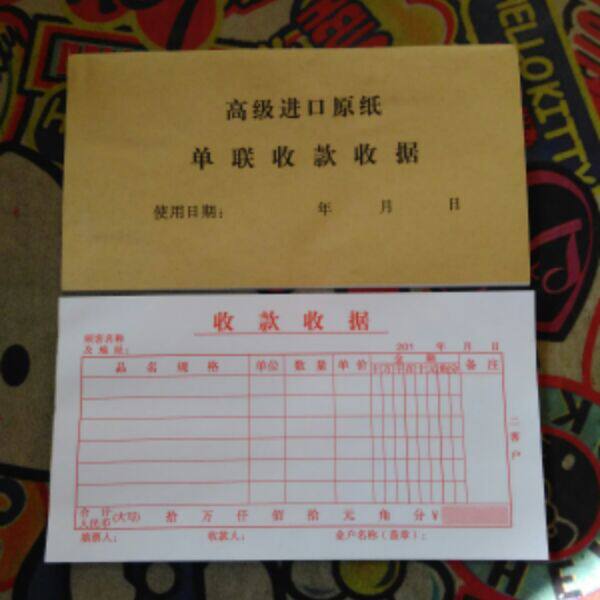 HELLO KITTY
高级进口原纸
单联收款收据
使用日期： 年 月 日
收款收据
顾客名称
及地址： 201 年 月 日
品名规格 单位 数量 单价 金额 备注
十万千百十元角分
二客户
合计
人民币(大写) 拾 万 仟 佰 拾 元 角 分 ¥
填票人： 收款人： 业户名称（盖章）：